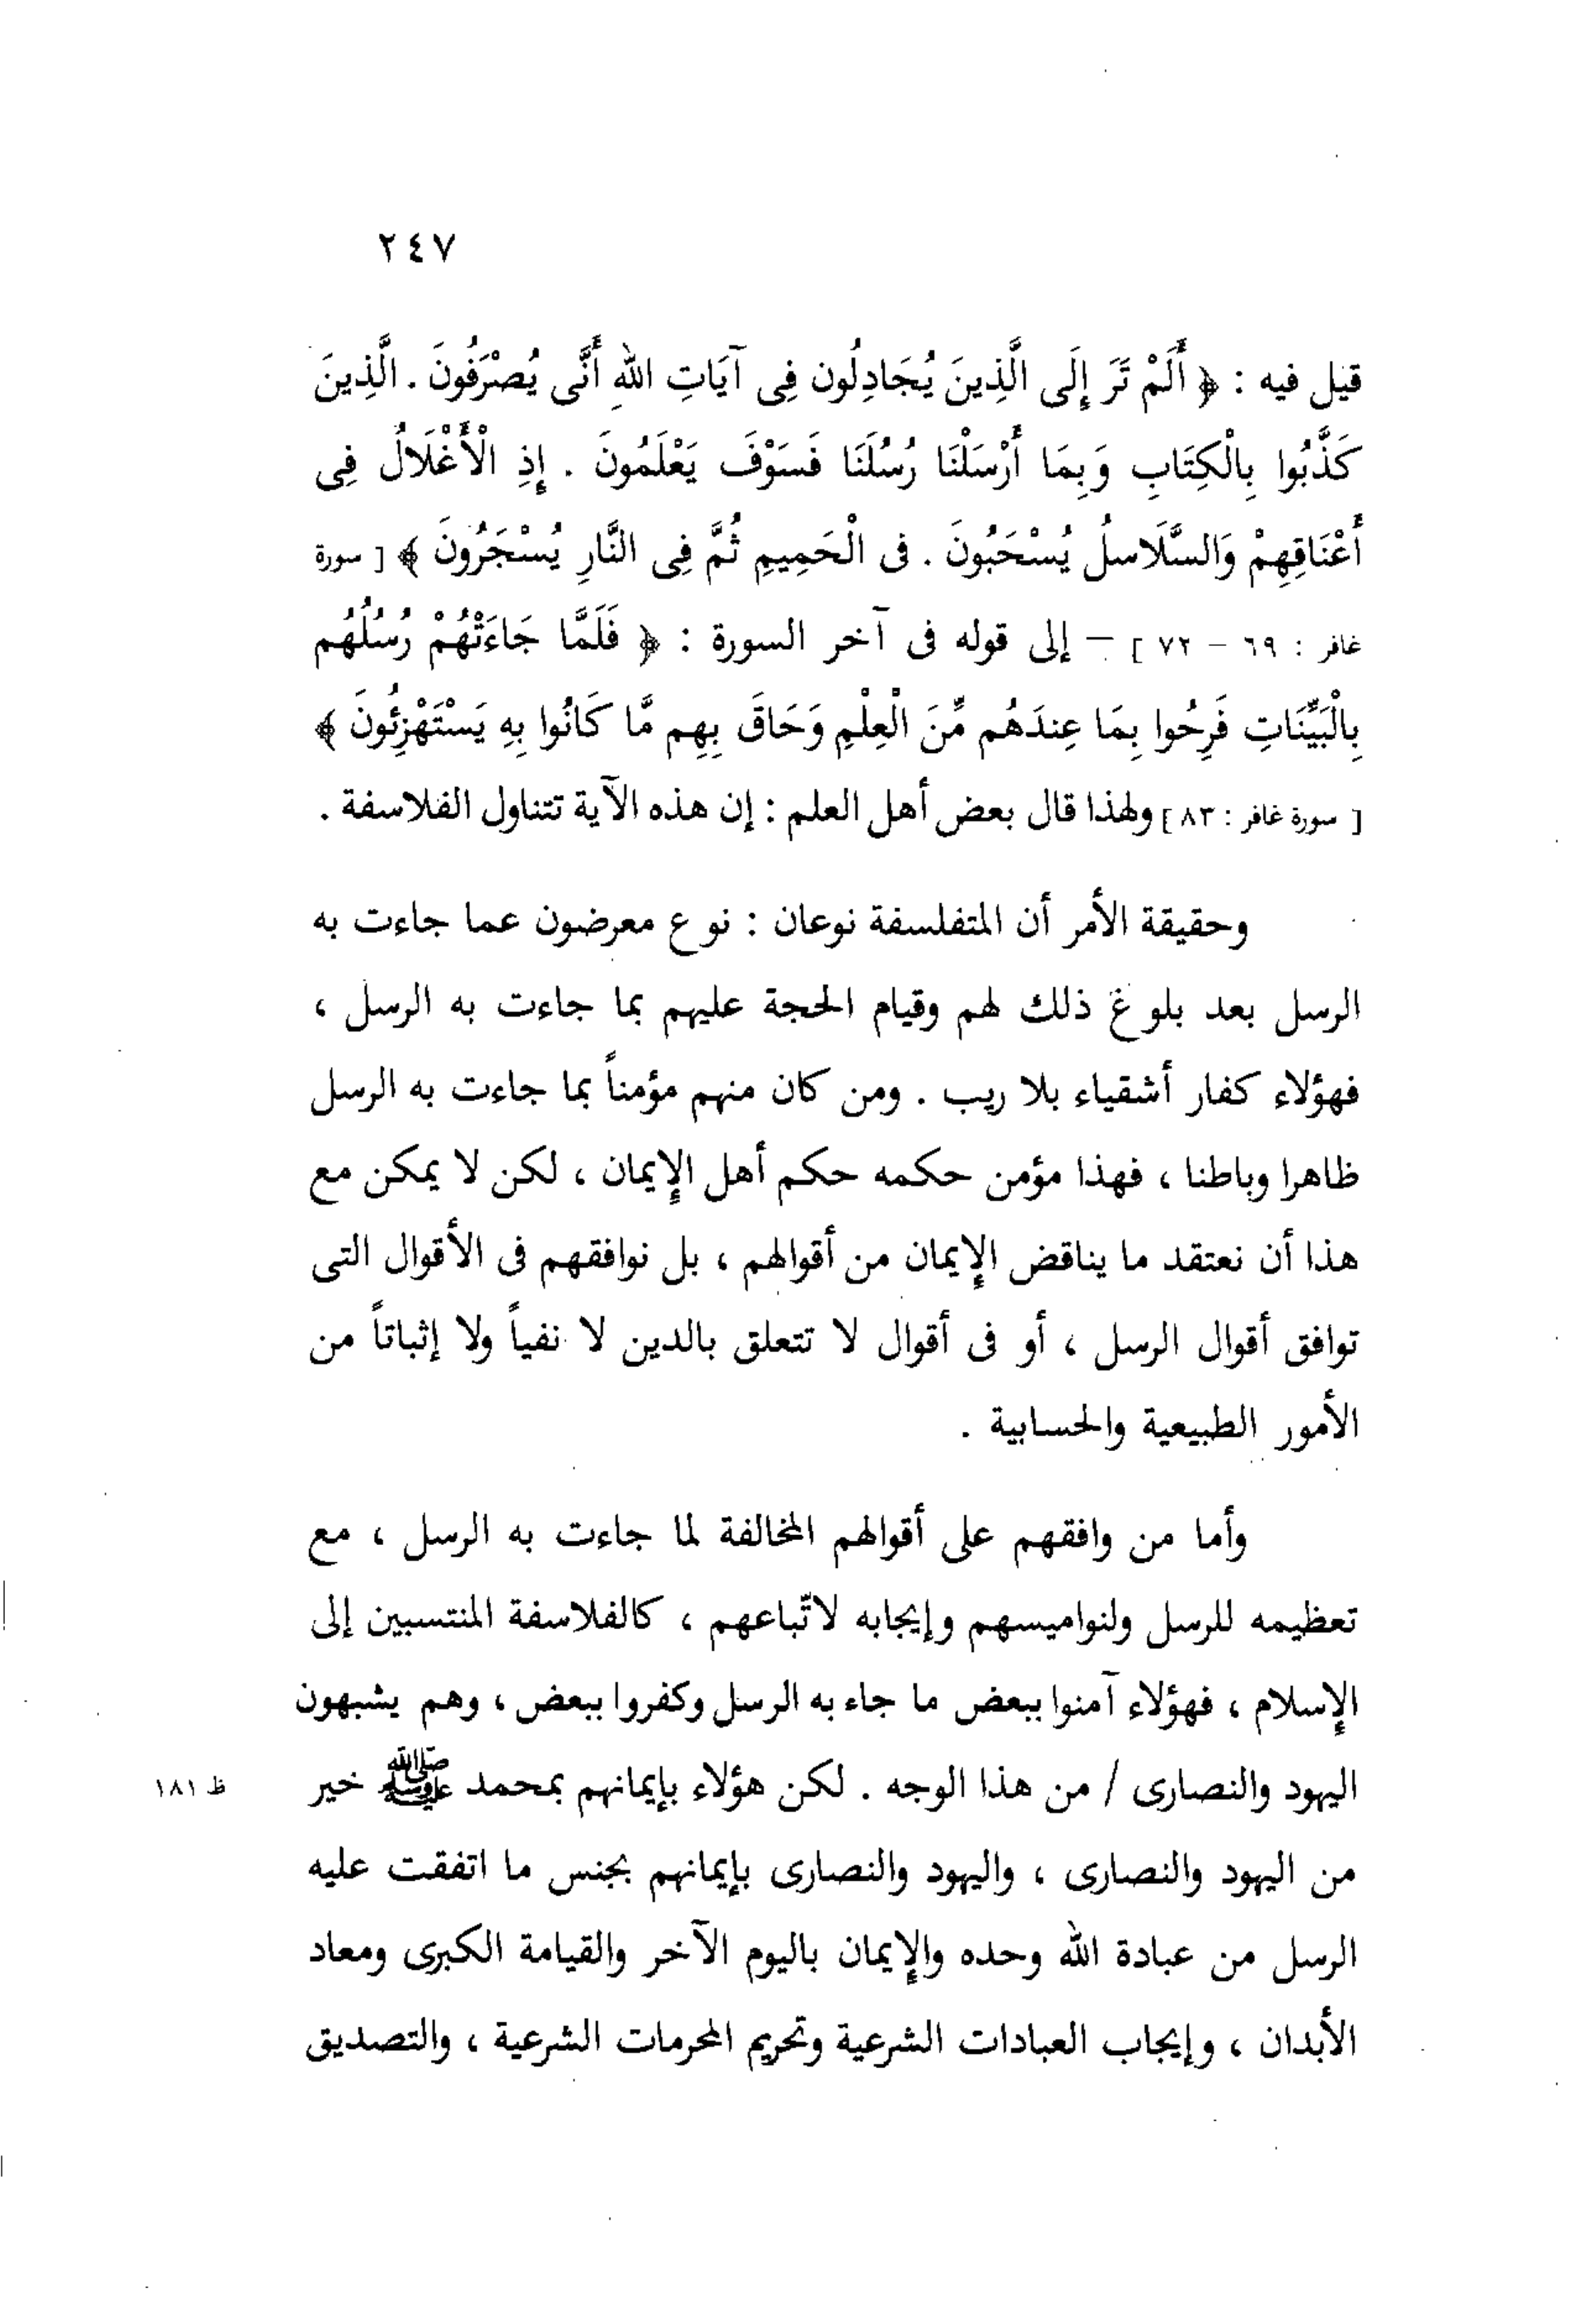 ٢٤٧
قيل فيه : ﴿ أَلَمْ تَرَ إِلَى الَّذِينَ يُجَادِلُون فِى آيَاتِ اللهِ أَنَّى يُصْرَفُونَ . الَّذِينَ
كَذَّبُوا بِالْكِتَابِ وَبِمَا أَرْسَلْنَا رُسُلَنَا فَسَوْفَ يَعْلَمُونَ . إِذِ الْأَغْلَالُ فِى
أَعْنَاقِهِمْ وَالسَّلَاسلُ يُسْحَبُونَ . فى الْحَمِيمِ ثُمَّ فِى النَّارِ يُسْجَرُونَ ﴾ [ سورة
غافر : ٦٩ – ٧٢ ] – إلى قوله فى آخر السورة : ﴿ فَلَمَّا جَاءَتْهُمْ رُسُلُهُم
بِالْبَيِّنَاتِ فَرِحُوا بِمَا عِندَهُم مِّنَ الْعِلْمِ وَحَاقَ بِهِم مَّا كَانُوا بِهِ يَسْتَهْزِئُونَ ﴾
[ سورة غافر : ٨٣ ] ولهذا قال بعض أهل العلم : إن هذه الآية تتناول الفلاسفة .
وحقيقة الأمر أن المتفلسفة نوعان : نوع معرضون عما جاءت به
الرسل بعد بلوغ ذلك لهم وقيام الحجة عليهم بما جاءت به الرسل ،
فهؤلاء كفار أشقياء بلا ريب . ومن كان منهم مؤمناً بما جاءت به الرسل
ظاهرا وباطنا ، فهذا مؤمن حكمه حكم أهل الإيمان ، لكن لا يمكن مع
هذا أن نعتقد ما يناقض الإيمان من أقوالهم ، بل نوافقهم فى الأقوال التى
توافق أقوال الرسل ، أو فى أقوال لا تتعلق بالدين لا نفياً ولا إثباتاً من
الأمور الطبيعية والحسابية .
وأما من وافقهم على أقوالهم المخالفة لما جاءت به الرسل ، مع
تعظيمه للرسل ولنواميسهم وإيجابه لاتّباعهم ، كالفلاسفة المنتسبين إلى
الإسلام ، فهؤلاء آمنوا ببعض ما جاء به الرسل وكفروا ببعض ، وهم يشبهون
اليهود والنصارى / من هذا الوجه . لكن هؤلاء بإيمانهم بمحمد ﷺ خير ظ ١٨١
من اليهود والنصارى ، واليهود والنصارى بإيمانهم بجنس ما اتفقت عليه
الرسل من عبادة الله وحده والإيمان باليوم الآخر والقيامة الكبرى ومعاد
الأبدان ، وإيجاب العبادات الشرعية وتحريم المحرمات الشرعية ، والتصديق